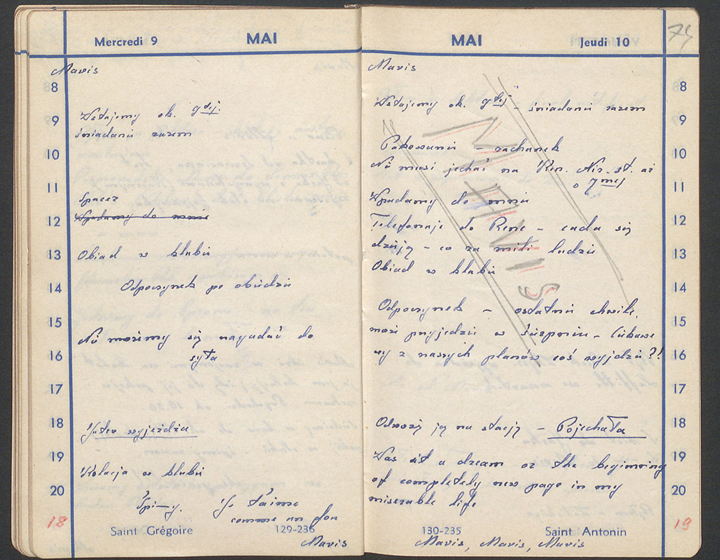 Mercredi 9
MAI
Mavis
8
Wstajemy ok. 9tej.
9
śniadanie razem
10
11
Spacer
Wpadamy do mnie
12
13
Obiad w klubie
Odpoczynek po obiedzie
14
15
Nie możemy się nagadać do
syta
16
17
18
Jutro wyjeżdża
19
Kolacja w klubie
20
Śpimy. Je t'aime
comme un fou
18
Saint Grégoire
129-236
Mavis
MAI
Jeudi 10
75
Mavis
8
Wstajemy ok. 9tej - śniadanie razem
9
Pakowanie - rachunek
10
No musi jechać na st. aż
o 7mej
11
Wpadamy do mnie
12
Telefonuje do Rene - cada się
dzięję - co za mili ludzie
13
Obiad w klubie
14
Odpoczynek - ostatnie chwile,
może przyjedzie w sierpniu - Ciekawe
15
czy z naszych planów coś wyjdzie?!
16
17
MAVIS
18
Odwożę ją na stację - Pojechała
19
Was it a dream or the beginning
of completely new page in my
20
miserable life
19
130-235
Saint Antonin
Mavis, Mavis, Mavis